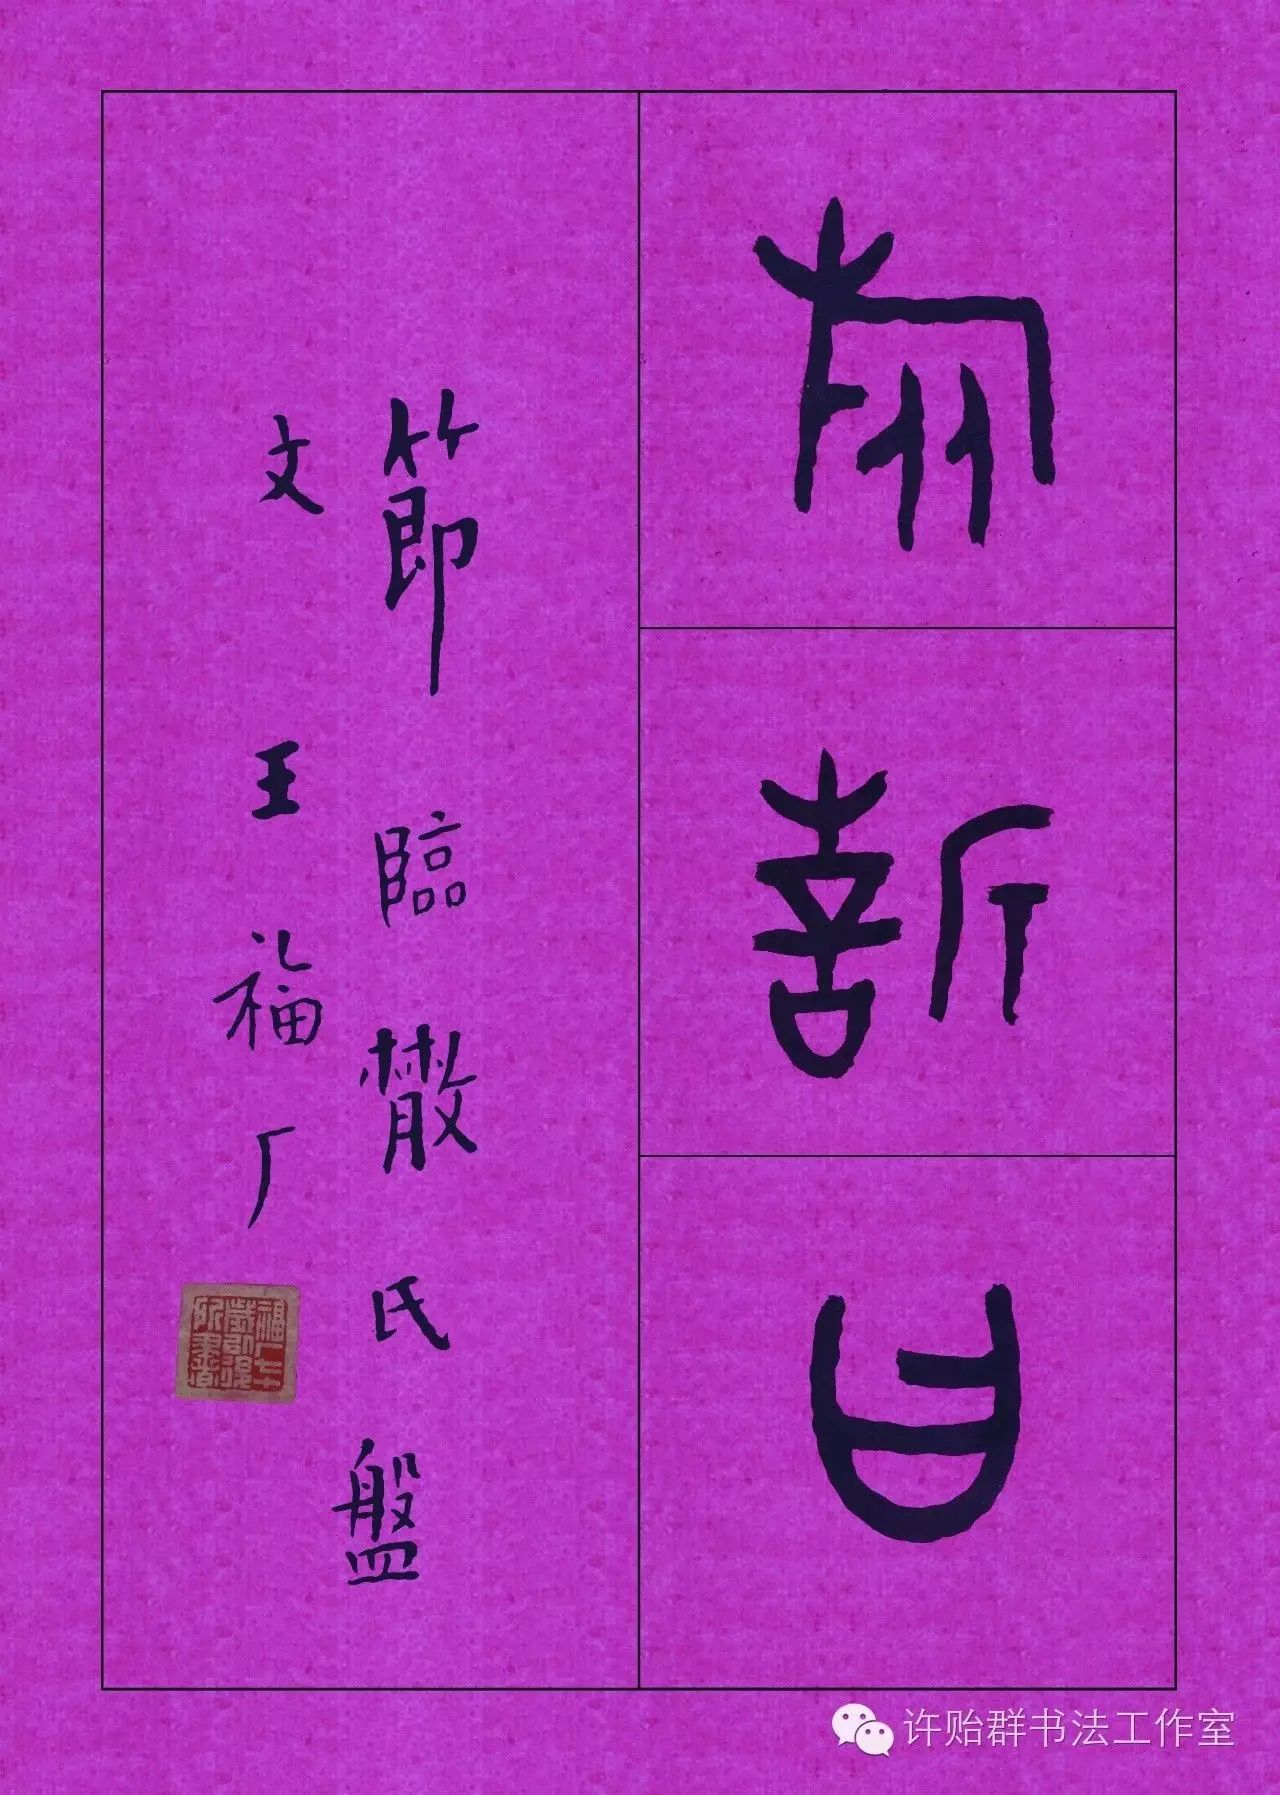 旅誓曰
節臨散氏盤
文 王福厂
许贻群书法工作室